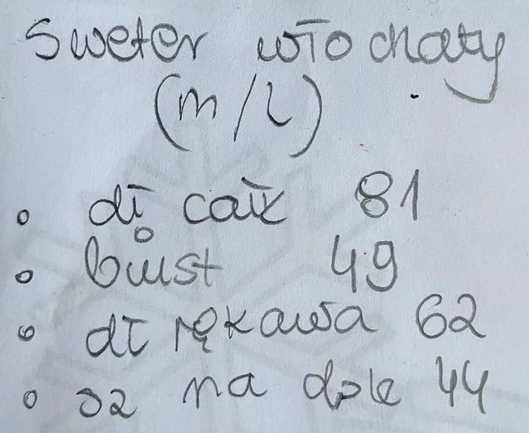 Sweter włochaty
(m/L)
• dł całk 81
• biust 49
• dł rękawa 62
• sz na dole 44